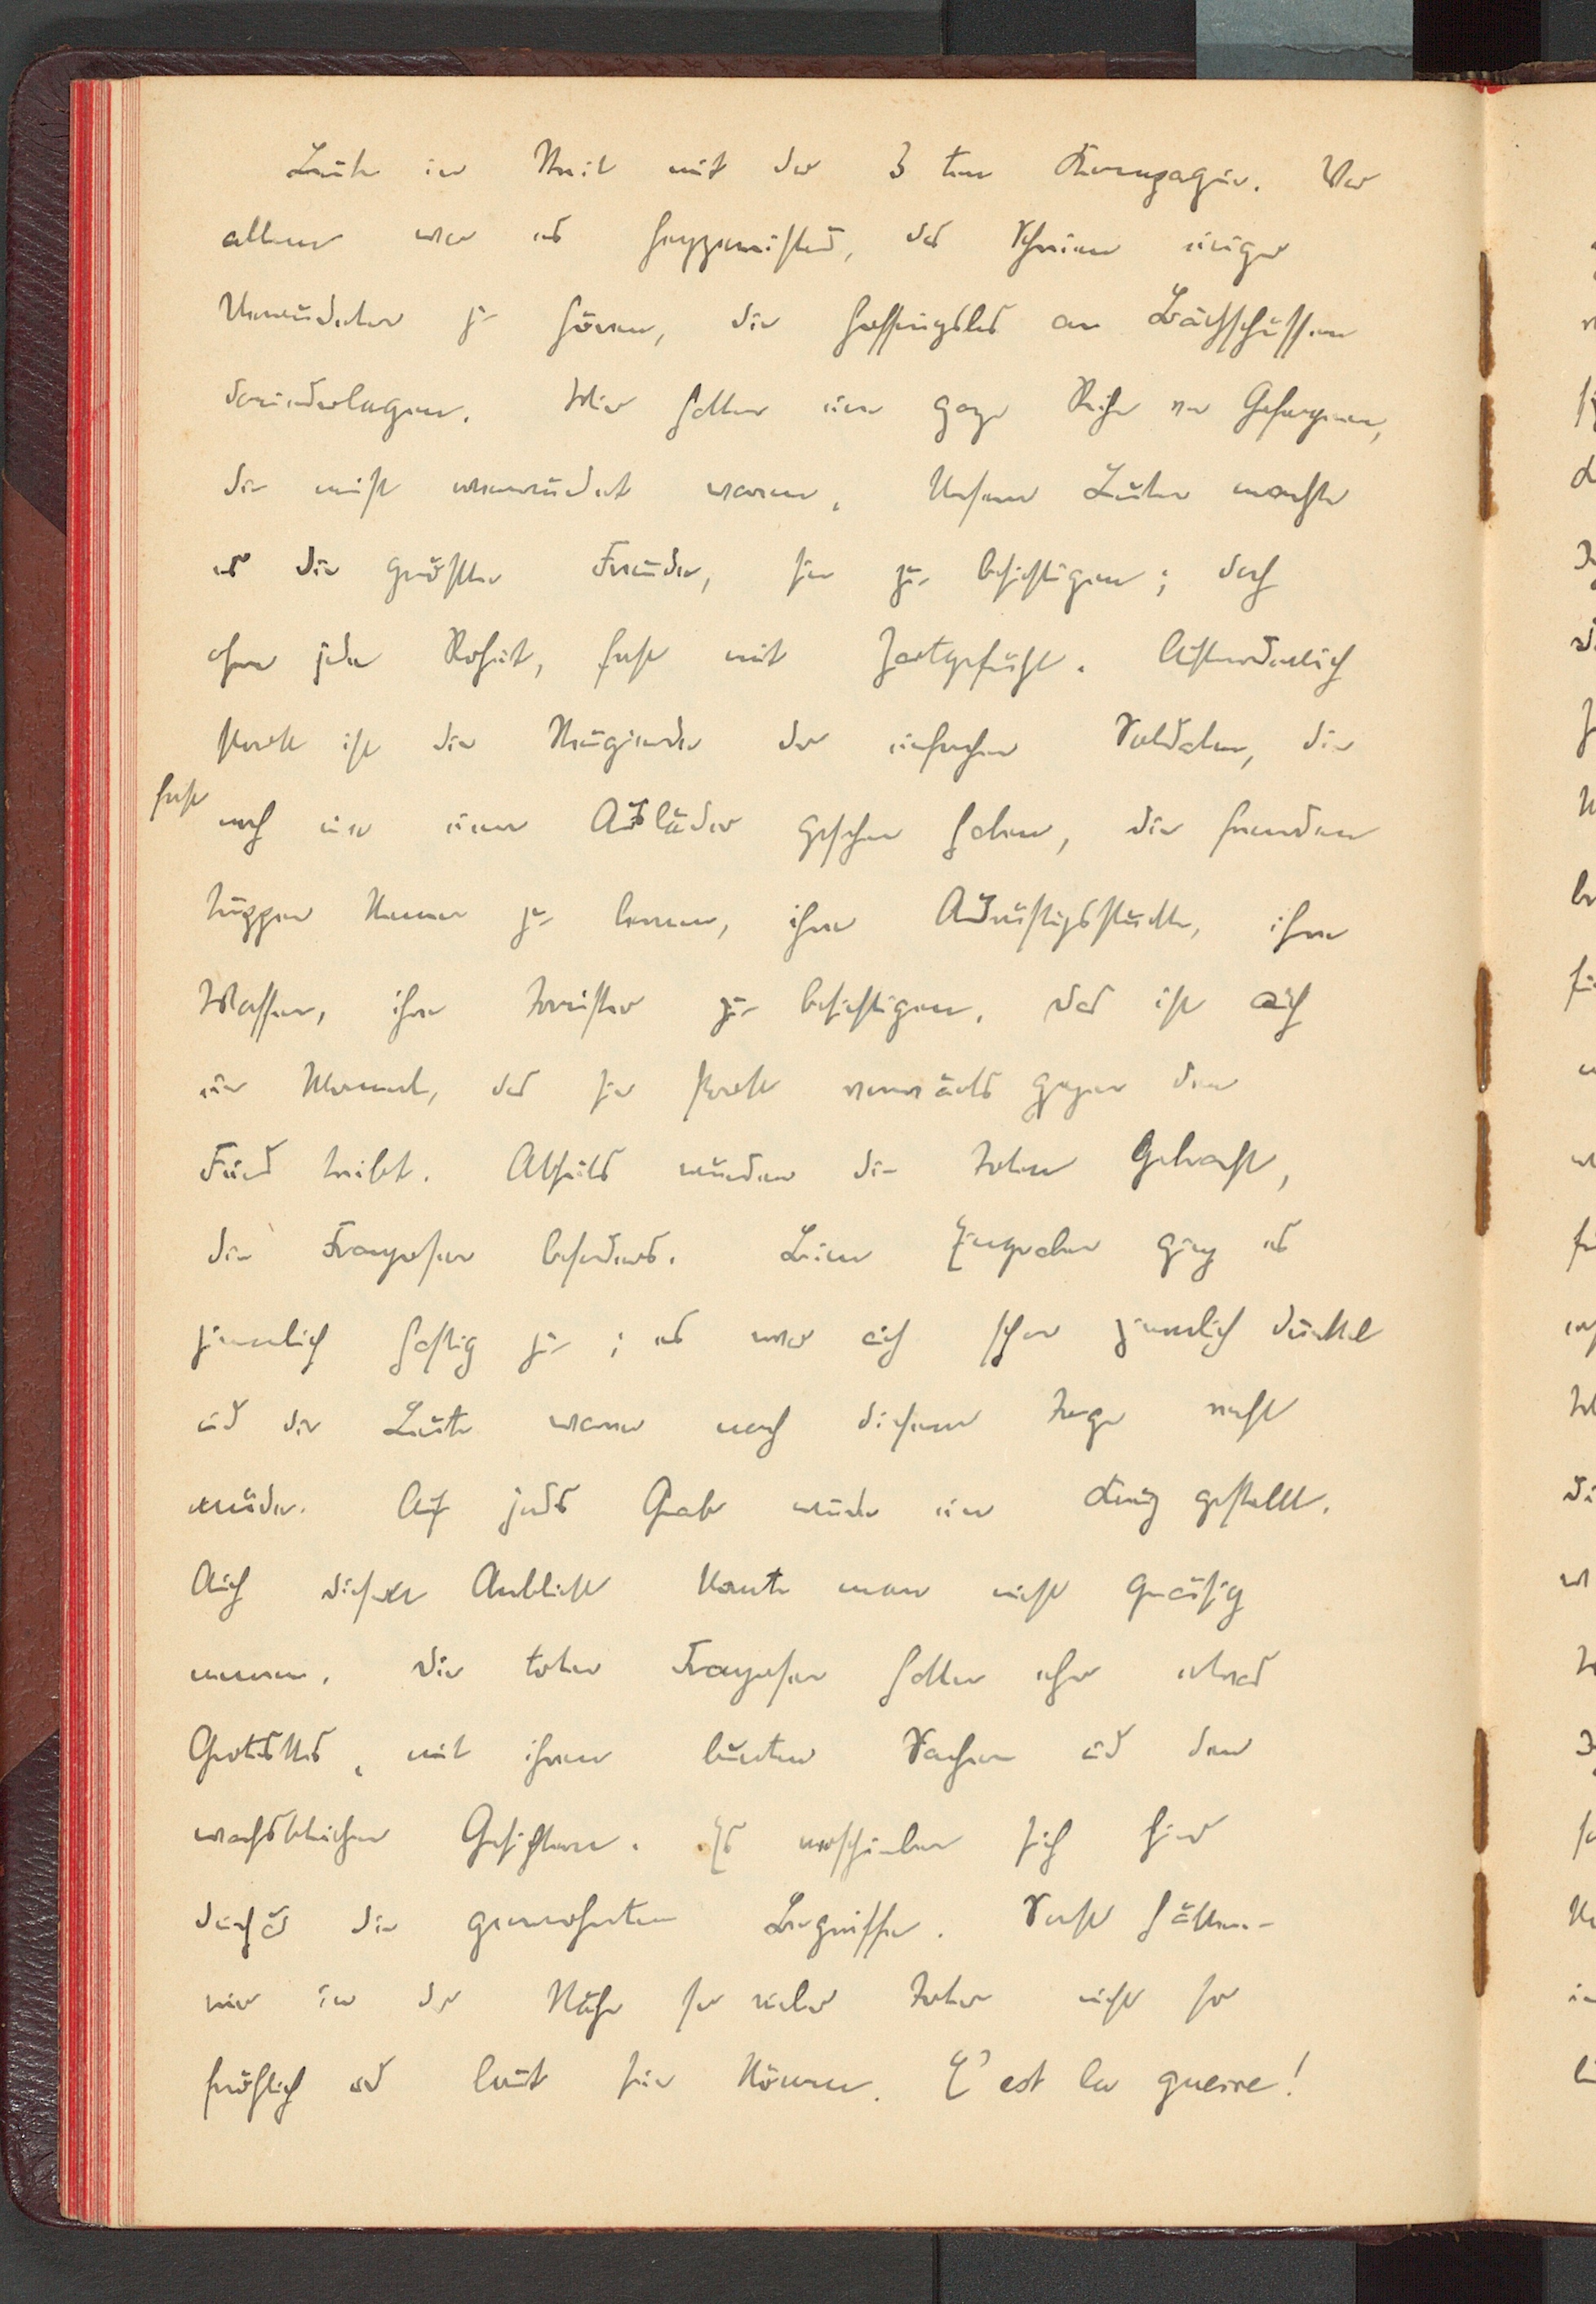 Leute im Streit mit der 3 ten Kompagnie. Vor
allem war es herzzereißend, das Schreien einiger
Verwundeter zu hören, die hoffnungslos an Bauchschüssen
darniederlagen. Wir hatten eine ganze Reihe von Gefangenen,
die meist verwundet waren. Unseren Leuten machte
es die größte Freude, sie zu besichtigen; doch
ohne jede Roheit, fast mit Zartgefühl. Außerordentlich
stark ist die Neugierde der einfachen Soldaten, die
fast noch nie einen Ausländer gesehen haben, die fremden
Truppen kennen zu lernen, ihre Ausrüstungsstücke, ihre
Waffen, ihre Tornister zu besichtigen. Das ist auch
ein Moment, das sie stark vorwärts gegen den
Feind treibt. Abseits wurden die Toten gebracht,
die Franzosen besonders. Beim Eingraben ging es
ziemlich hastig zu; es war auch schon ziemlich dunkel
und die Leute waren nach diesem Tage recht
müde. Auf jedes Grab wurde ein Kreuz gestellt.
Auch diesen Anblick konnte man nicht grausig
nennen. Die toten Franzosen hatten eher etwas
Groteskes, mit ihren bunten Sachen und den
wachsbleichen Gesichtern. Es verschieben sich hier
durchaus die gewohnten Begriffe. Sonst hätten
wir in der Nähe so vieler Toter nicht so
fröhlich und laut sein können. C'est la guerre!